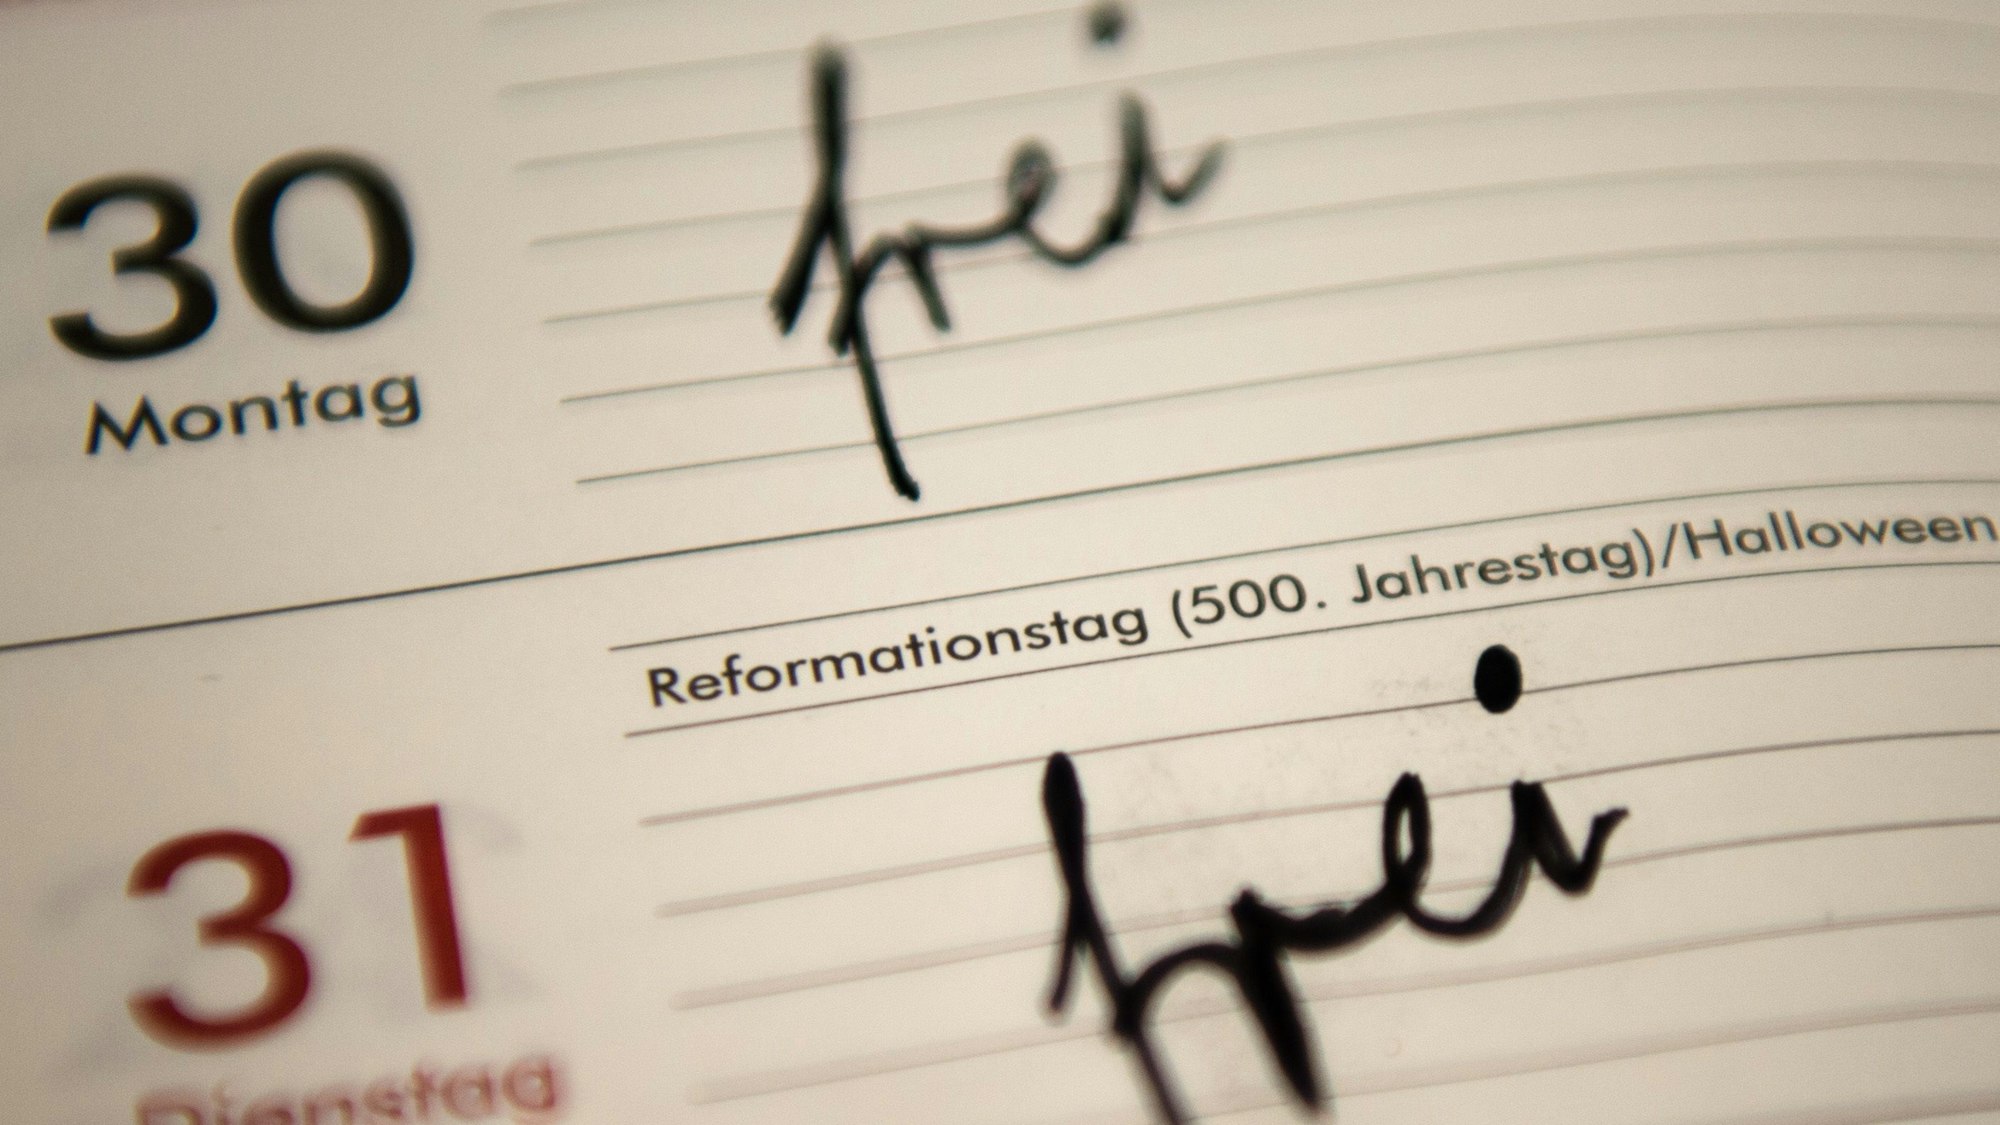 frei
30
Montag
Reformationstag (500. Jahrestag)/Halloween
frei
31
Dienstag